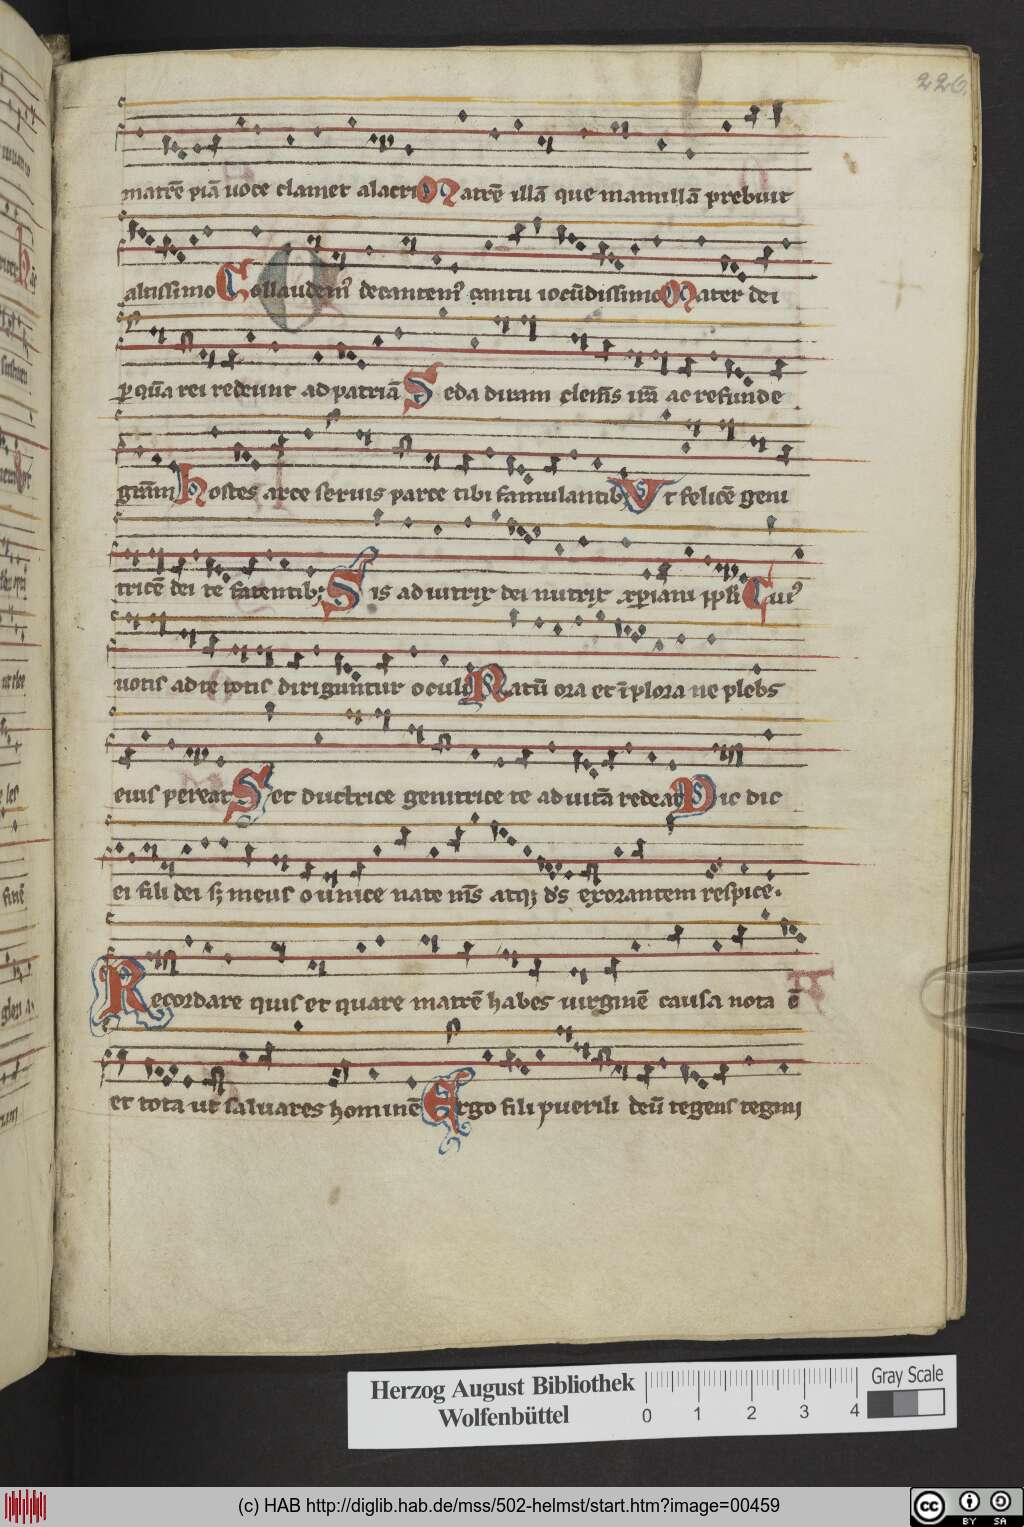 226.
matrē piā uoce clamet alacri Matrē illā que mamillā prebuit
altissimo Collaudem᾽ decantem᾽ cantu iocūdissimo Mater dei
ꝑ quā rei redeunt ad patriā Seda diram clemēs irā ac refunde
gram̄ hostes arce seruis parce tibi famulantibꝫ Vt felicē geni
tricē dei te fatentibꝫ Sis adiutrix dei nutrix xp̄iani ppl̄i Cui᾽
uotis ad te totis diriguntur oculi Natū ora et īplora ne plebs
eius pereat Set ductrice genitrice te ad uitā redeat Dic dic
ei fili dei sꝫ meus o unice nate m̄s atqꝫ d̄s exorantem respice.
Recordare quis et quare matrē habes uirginē causa nota ē
et tota ut saluares hominē Ergo fili puerili deū tegens tegmi
Herzog August Bibliothek
Wolfenbüttel
0 1 2 3 4
Gray Scale
(c) HAB http://diglib.hab.de/mss/502-helmst/start.htm?image=00459
cc BY SA